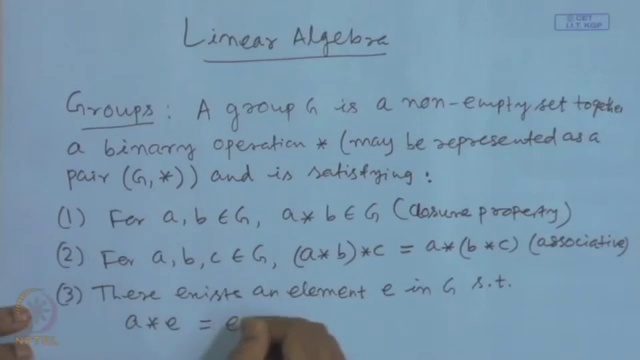 © CET
I.I.T. KGP
Linear Algebra
Groups : A group G is a non-empty set together
a binary operation * (may be represented as a
pair (G, *)) and is satisfying :
(1) For a, b ∈ G, a * b ∈ G (closure property)
(2) For a, b, c ∈ G, (a * b) * c = a * (b * c) (associative)
(3) There exists an element e in G s.t.
a * e = e
NPTEL